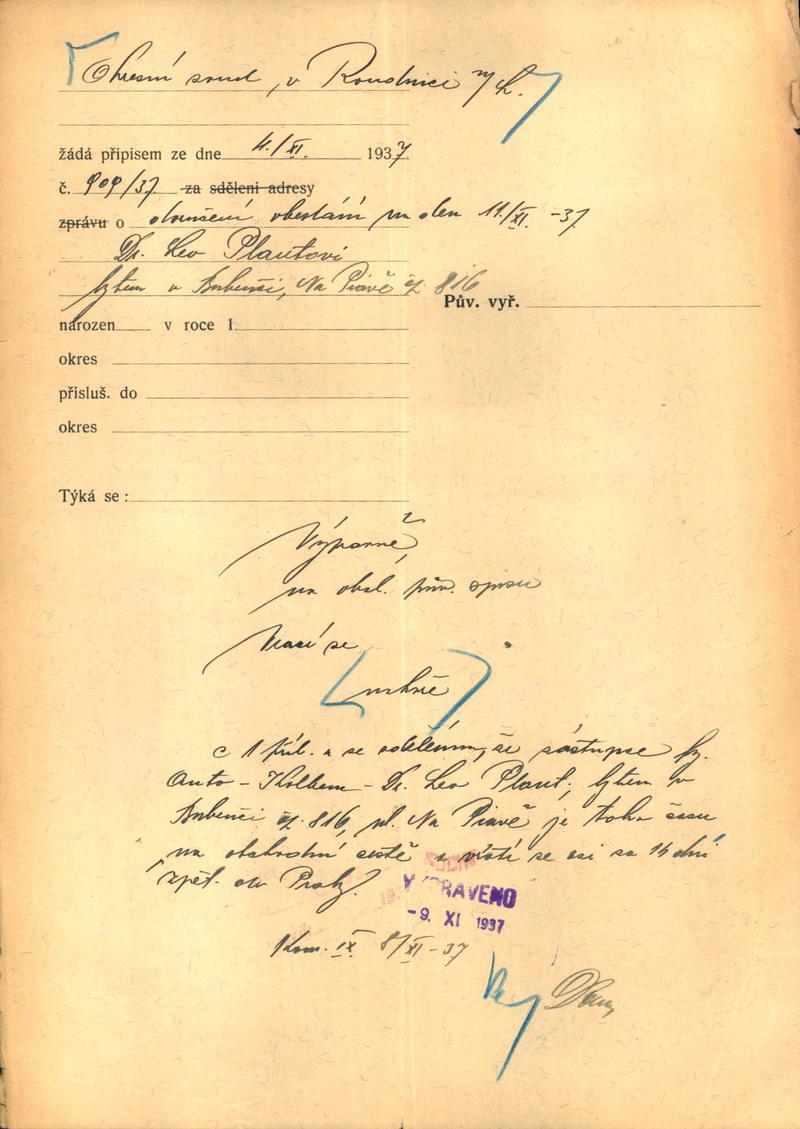 Okresní soud, v Roudnici n/L.
žádá přípisem ze dne 4./XI. 1937
č. 909/37 za sdělení adresy
zprávu o doručení obeslání na den 11./XI. -37
Dr. Leo Plautovi
bytem v Bubenči, Na Piavě čp. 816
Pův. vyř.
narozen v roce 1
okres
přísluš. do
okres
Týká se :
Výparně,
na obál. pův. spisu
Vrací se
c 1 příl. a se sdělením, že zástupce fy.
Auto - - Dr. Leo Plaut, bytem v
Bubenči čp. 816, ul. Na Piavě je toho času
na obchodní cestě a vrátí se asi za 14 dní
zpět do Prahy.
VYPRAVENO
-9. XI 1937
Kom. IX 8/XI - 37